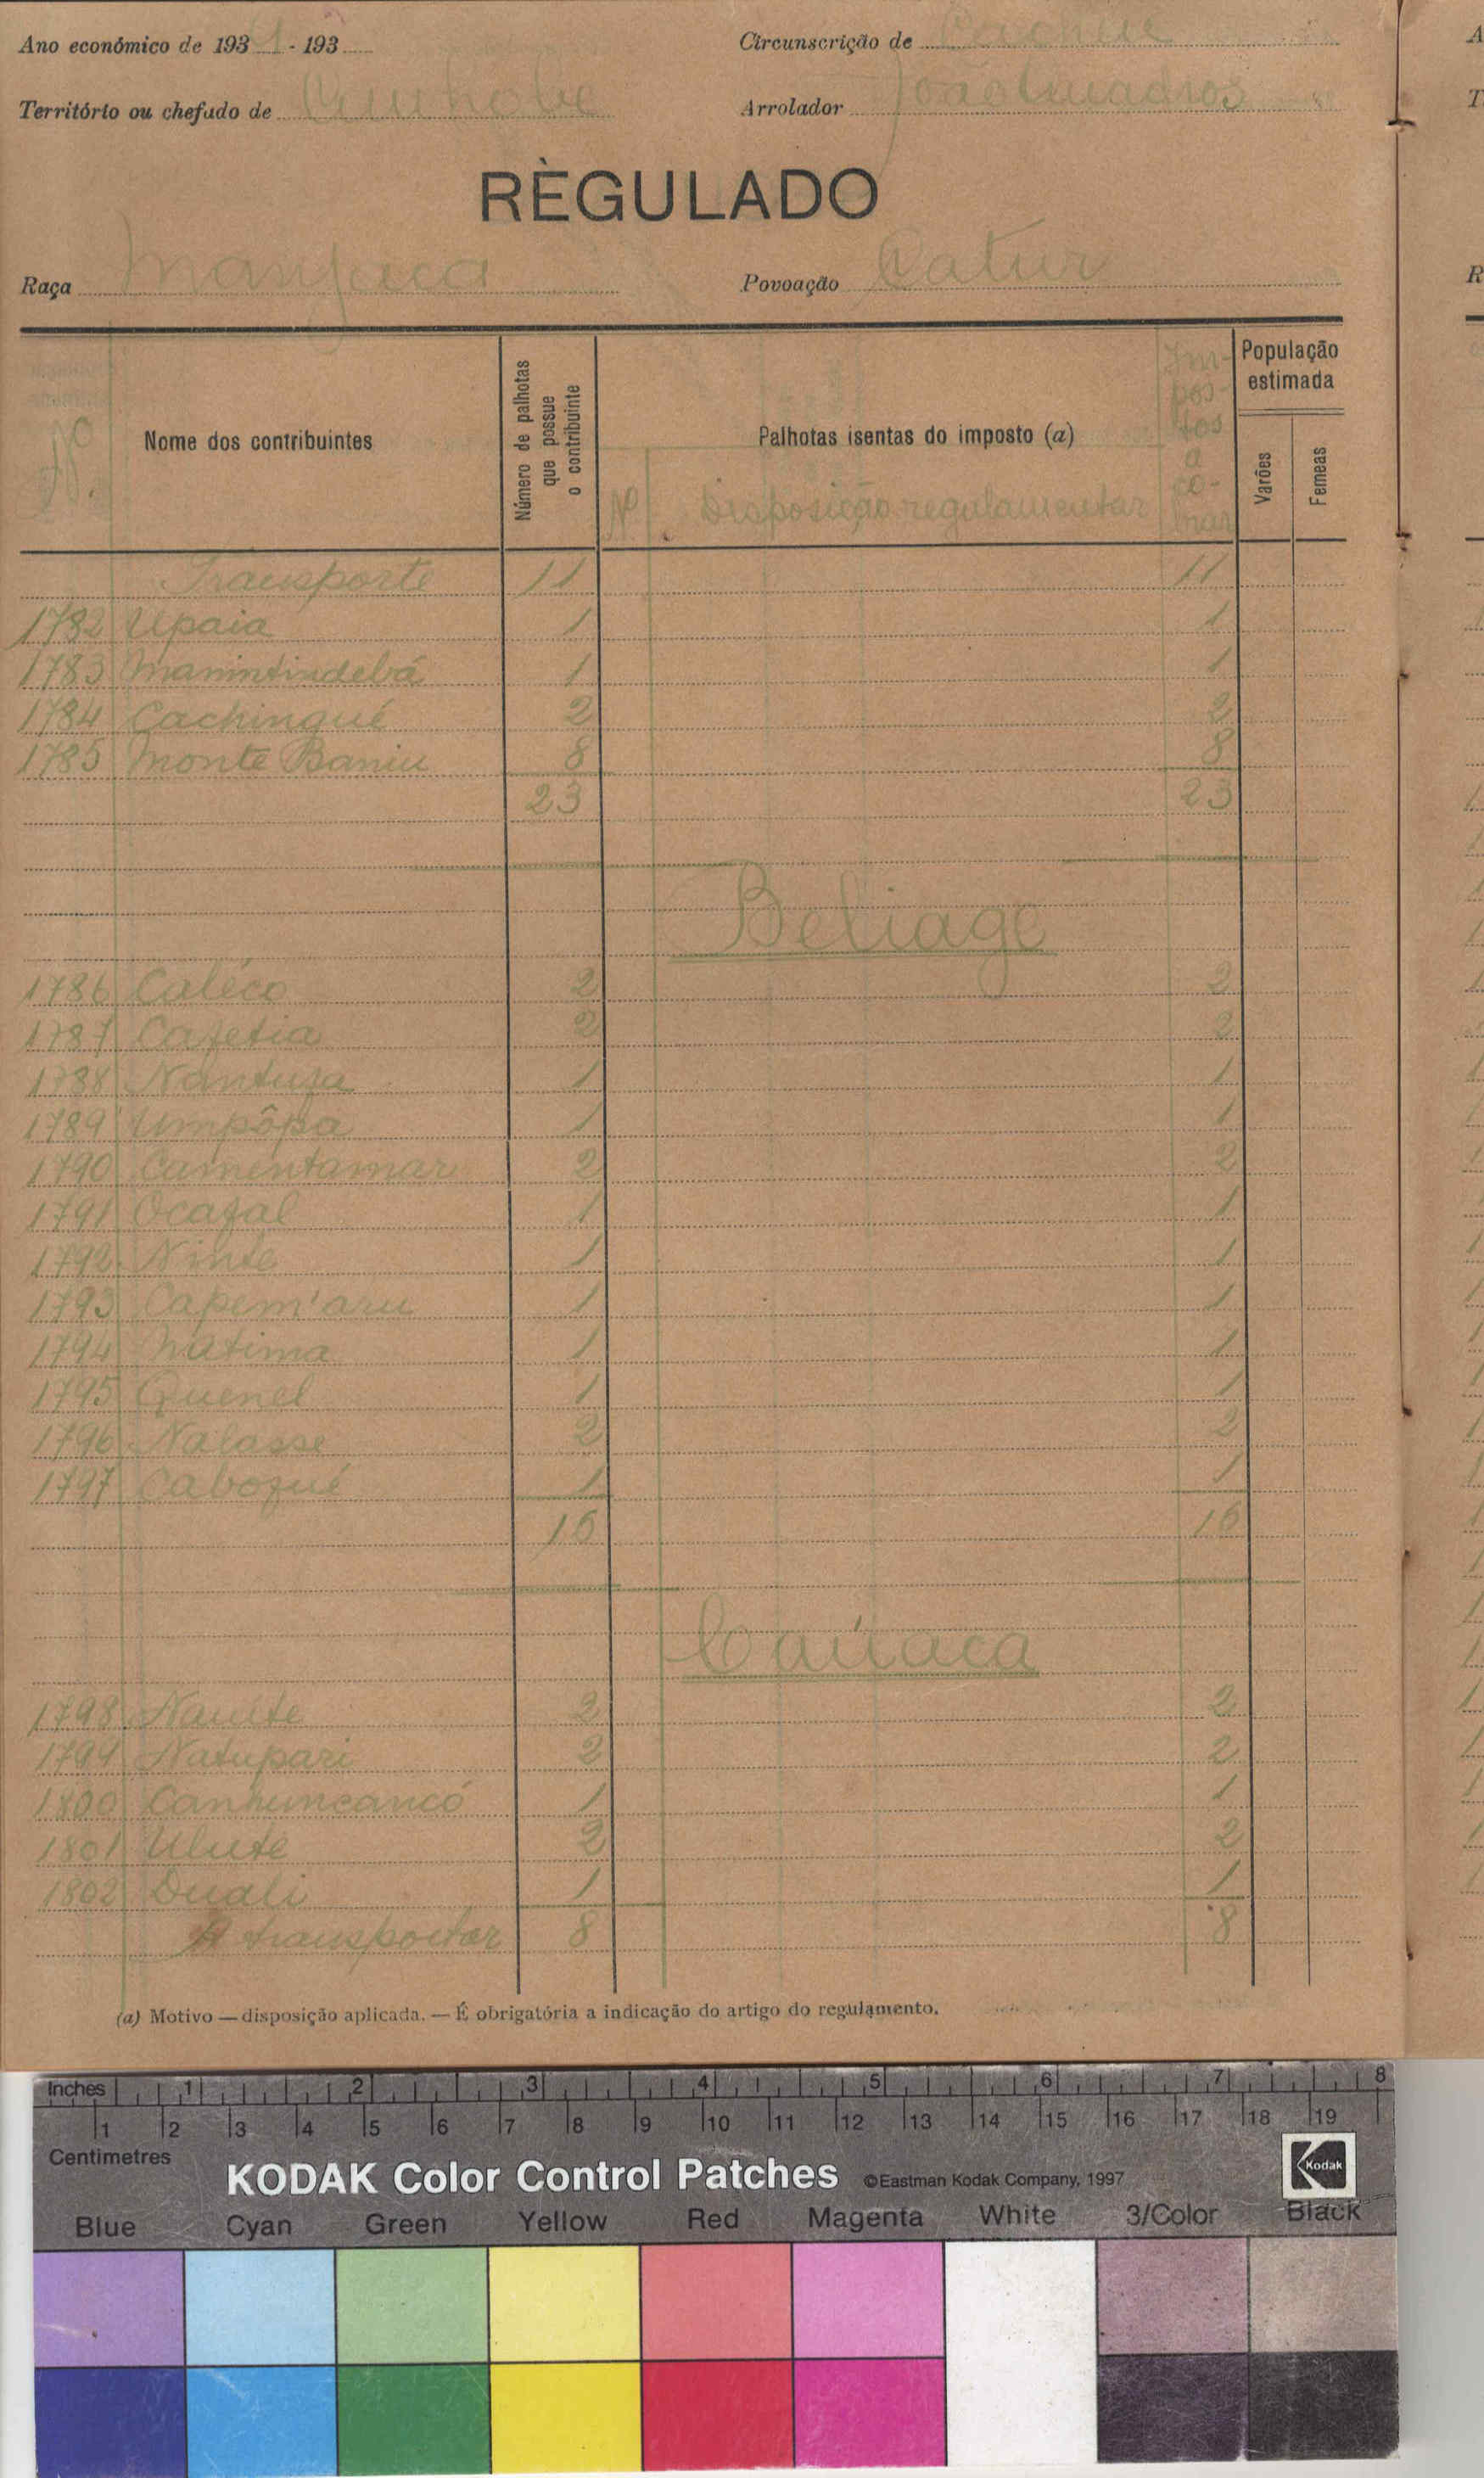 Ano económico de 193 - 193
Circunscrição de
Território ou chefado de
Arrolador João Quadros
RÈGULADO
Raça Manjaca
Povoação Catur
Nº
Nome dos contribuintes
Número de palhotas que possue o contribuinte
Palhotas isentas do imposto (a)
Nº Disposição regulamentar
Impostos a cobrar
População estimada
Varões
Femeas
Transporte 11 11
1782 Upaia 1 1
1783 Manintindebá 1 1
1784 Cachingué 2 2
1785 Monte Baniu 8 8
23 23
Beliage
1786 Caléco 2 2
1787 Cafetia 2 2
1788 Nantufa 1 1
1789 Umpôpa 1 1
1790 Camentamar 2 2
1791 Ocafal 1 1
1792 Ninte 1 1
1793 Capem'aru 1 1
1794 Natima 1 1
1795 Quenel 1 1
1796 Nalasse 2 2
1797 Cabozué 1 1
16 16
Caiiaca
1798 Naute 2 2
1799 Natupari 2 2
1800 Canhuncancó 1 1
1801 Ulute 2 2
1802 Duali 1 1
A transportar 8 8
(a) Motivo — disposição aplicada. — É obrigatória a indicação do artigo do regulamento.
Inches 1 2 3 4 5 6 7 8
1 2 3 4 5 6 7 8 9 10 11 12 13 14 15 16 17 18 19
Centimetres
KODAK Color Control Patches ©Eastman Kodak Company, 1997 Kodak
Blue Cyan Green Yellow Red Magenta White 3/Color Black